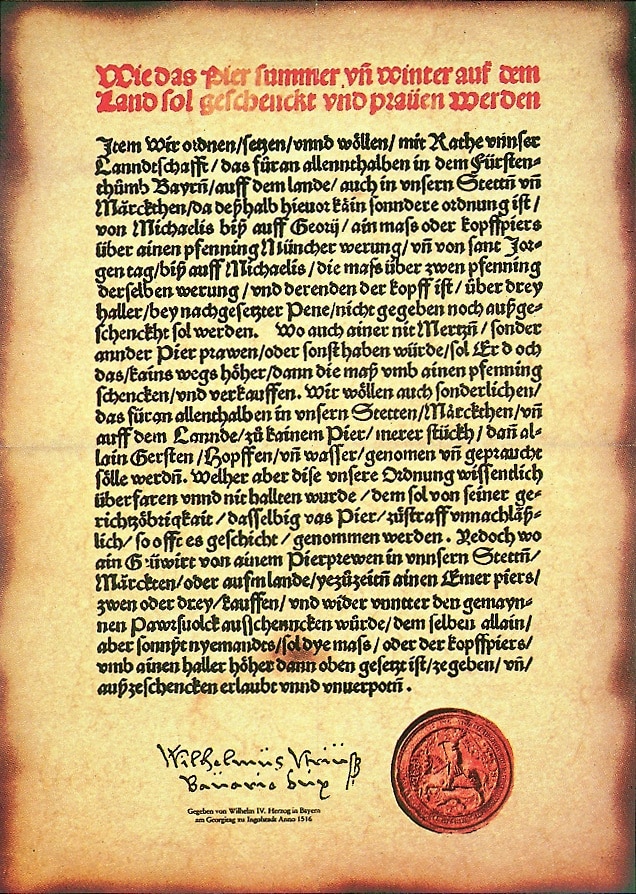 Wie das Pier summer vñ winter auf dem
Land sol geschenckt vnd praüen werden
Item Wir ordnen/setzen/vnnd wöllen/ mit Rathe vnnser
Lanndtschafft/ das füran allennthalben in dem Fürsten-
thümb Bayrñ/auff dem lande/ auch in vnsern Stettñ vñ
Märckthen/da deßhalb hieuor kain sonndere ordnung ist/
von Michaelis biß auff Georij/ ain mass oder kopffpiers
über ainen pfenning Müncher werung/ vñ von sant Jor-
gen tag/biß auff Michaelis/ die mass über zwen pfenning
derselben werung/ vnd derenden der kopff ist/ über drey
haller/bey nachgesetzter Pene/nicht gegeben noch außge-
schenckht sol werden. Wo auch ainer nit Mertzñ/ sonder
annder Pier prawen/oder sonst haben würde/sol Er doch
das/kains wegs höher/dann die maß vmb ainen pfenning
schencken/vnd verkauffen. Wir wöllen auch sonderlichen/
das füran allenthalben in vnsern Stetten/Märckthen/vñ
auff dem Lannde/zü kainem Pier/merer stückh/dañ al-
lain Gersten/Hopffen/vñ wasser/genomen vñ gepraucht
sölle werdñ. Welher aber dise vnsere Ordnung wissentlich
überfaren vnnd nit hallten wurde/dem sol von seiner ge-
richtzöbrigkait/dasselbig vas Pier/züstraff vnnachläß-
lich/so offt es geschicht/genommen werden. Yedoch wo
ain Güwirt von ainem Pierprewen in vnnsern Stettñ/
Märckten/oder aufm lande/yezüzeitñ ainen Emer piers/
zwen oder drey/kauffen/vnd wider vnntter den gemayn-
nen Pawrsuolck ausschenncken würde/dem selben allain/
aber sonnßt nyemandts/sol dye mass/oder der kopffpiers/
vmb ainen haller höher dann oben gesetzt ist/zegeben/vñ/
außzeschencken erlaubt vnnd vnuerpotñ.
Wilhelmüs
Bauarie Dux
Gegeben von Wilhelm IV. Herzog in Bayern
am Georgitag zu Ingolstadt Anno 1516